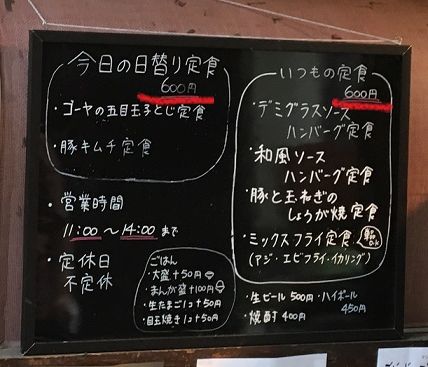 今日の日替り定食
600円
・ゴーヤの五目玉子とじ定食
・豚キムチ定食
・営業時間
11:00〜14:00まで
・定休日
不定休
ごはん
・大盛+50円
・まんが盛+100円
・生たまご1コ+50円
・目玉焼き1コ+50円
いつもの定食
600円
・デミグラスソース
ハンバーグ定食
・和風ソース
ハンバーグ定食
・豚と玉ねぎの
しょうが焼定食
・ミックスフライ定食
(アジ・エビフライ・イカリング)
・生ビール500円・ハイボール
450円
・焼酎400円